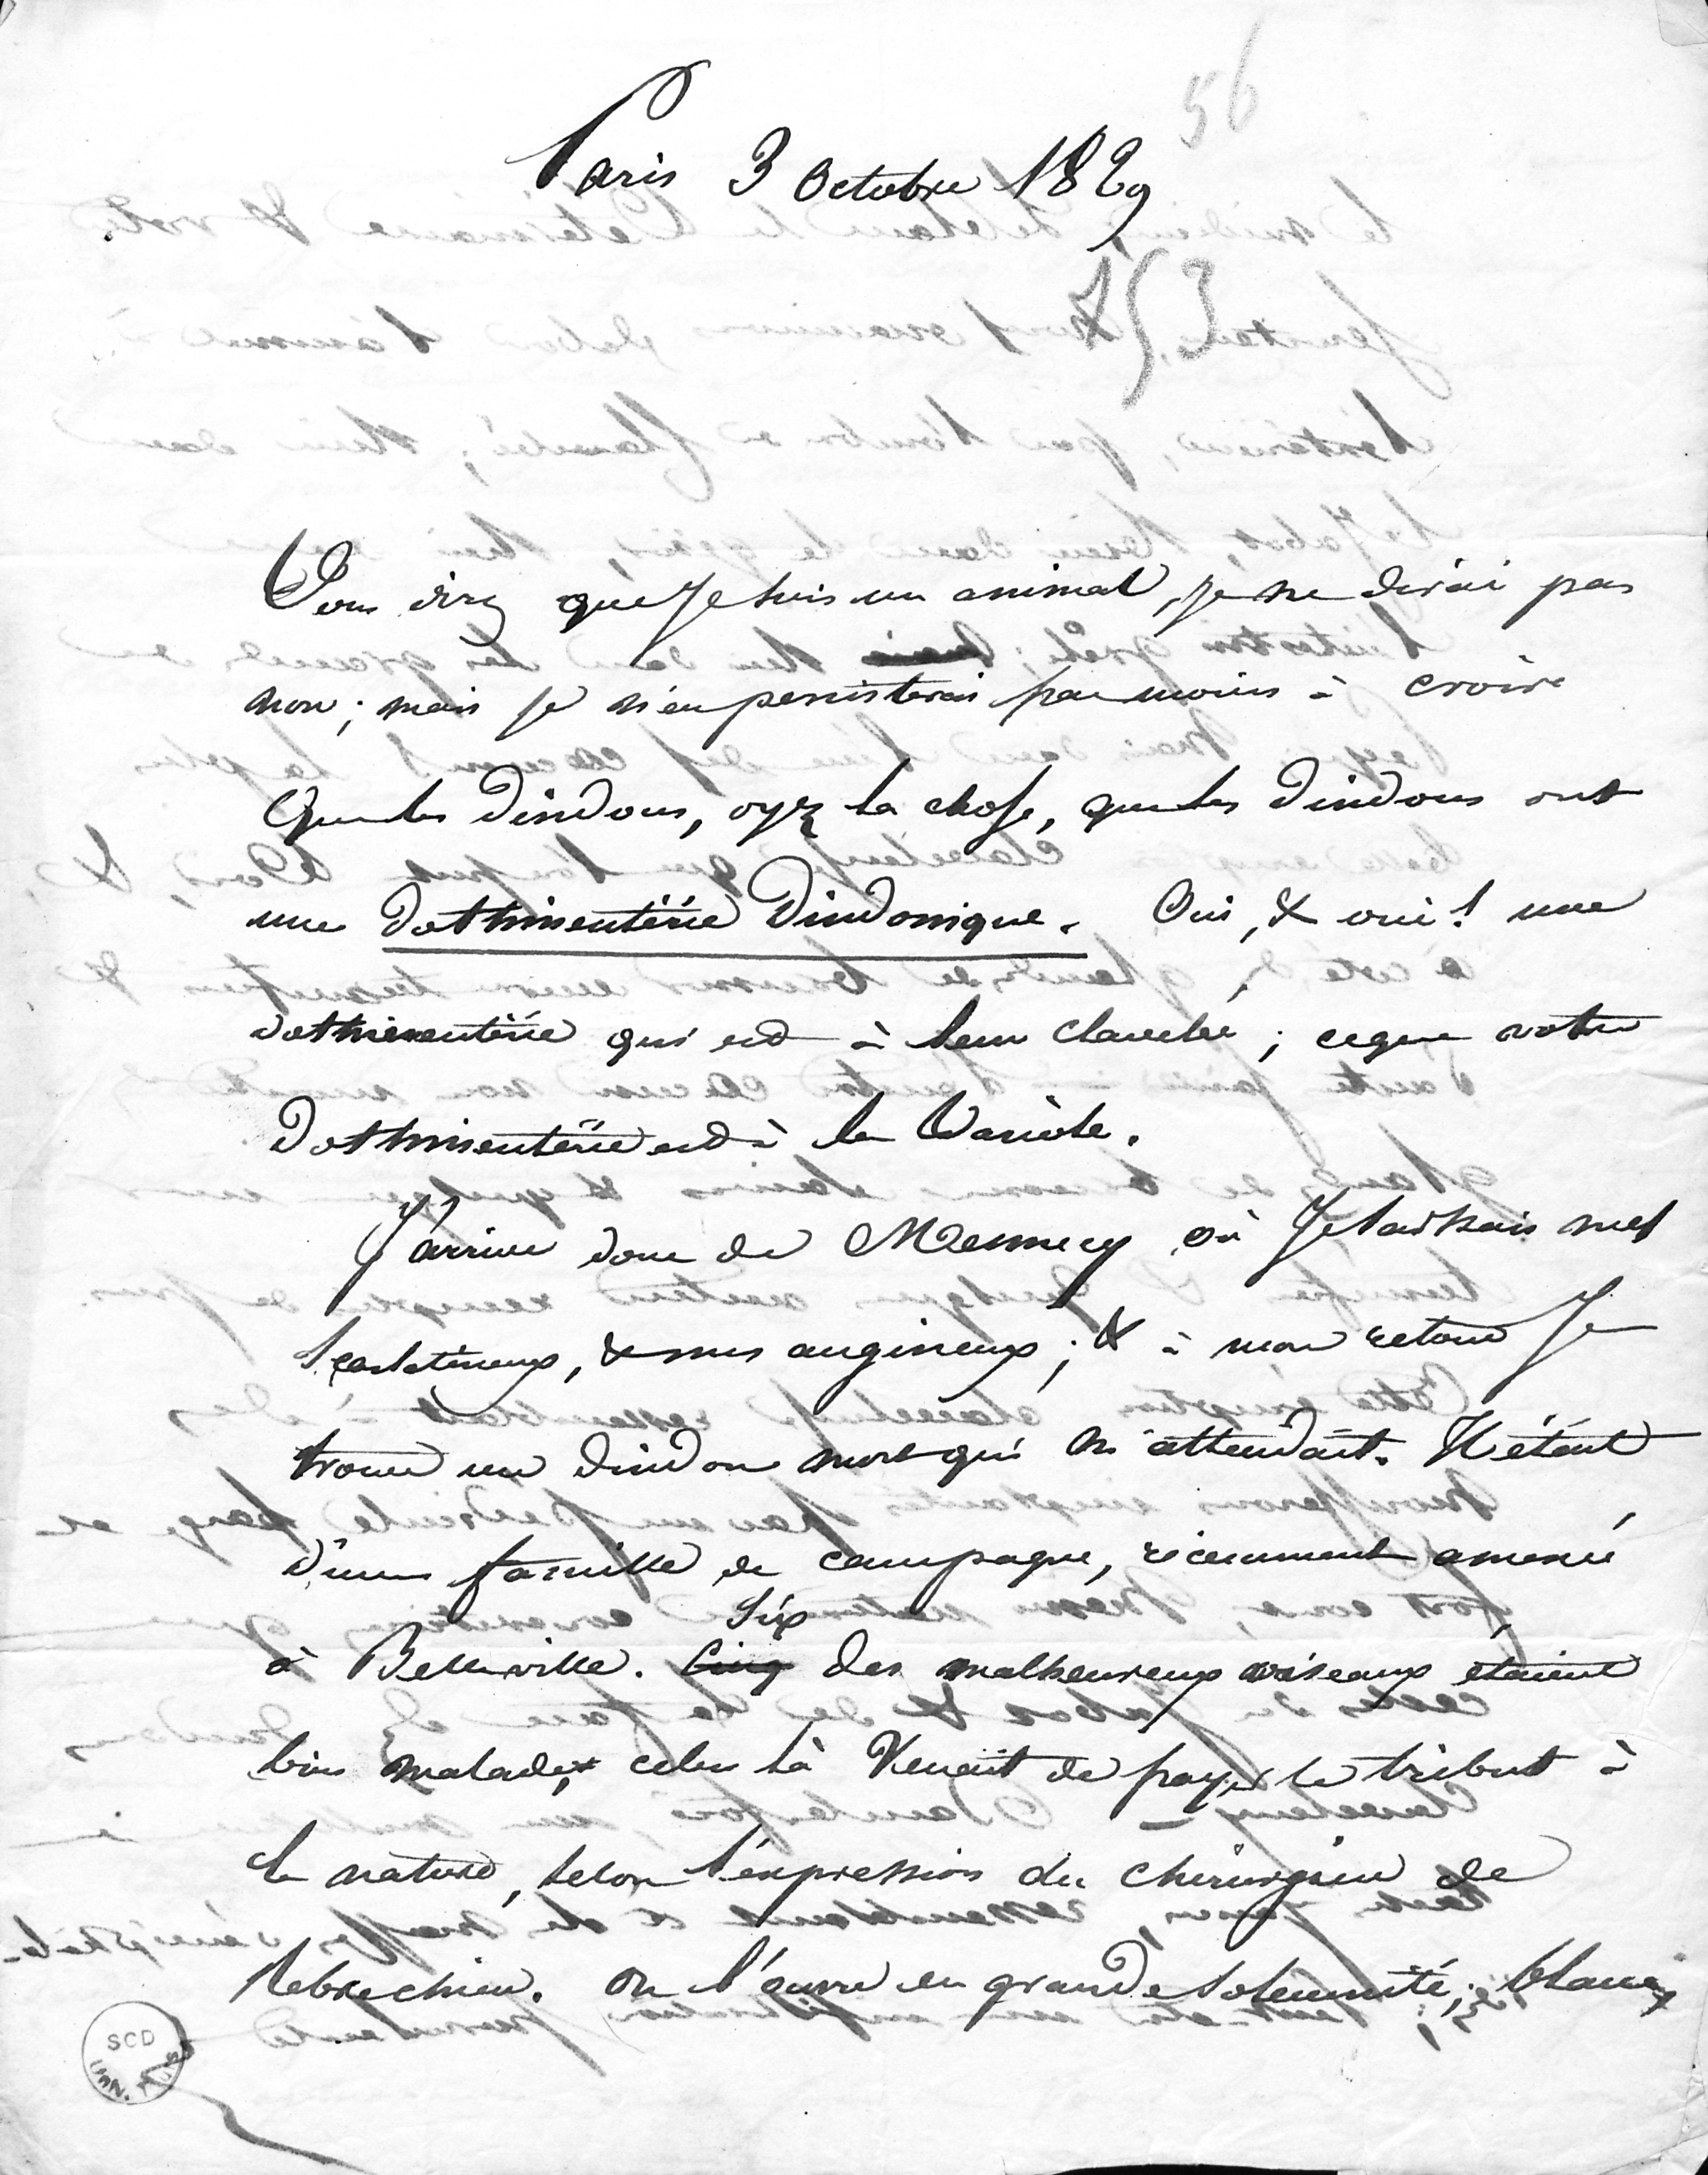 56
Paris 3 Octobre 1829
53
Vous direz que je suis un animal, je ne dirai pas
non; mais je n'en persisterai pas moins à croire
que les dindons, oyez la chose, que les dindons ont
une dothinentérie dindonique. Oui, & oui! une
dothinentérie qui est à leur clavelée; ce que notre
dothinentérie est à la variole.
J'arrive donc de Mennecy où je laissais mes
scarlatineux, & mes angineux; & à mon retour je
trouve un dindon mort qui m'attendait. Il était
d'une famille de campagne, récemment amenée
six
à Belleville. Cinq des malheureux oiseaux étaient
bien malades, celui là venait de payer le tribut à
la nature, selon l'expression du chirurgien de
Rebrechien. on l'ouvre en grande solemnité;
SCD